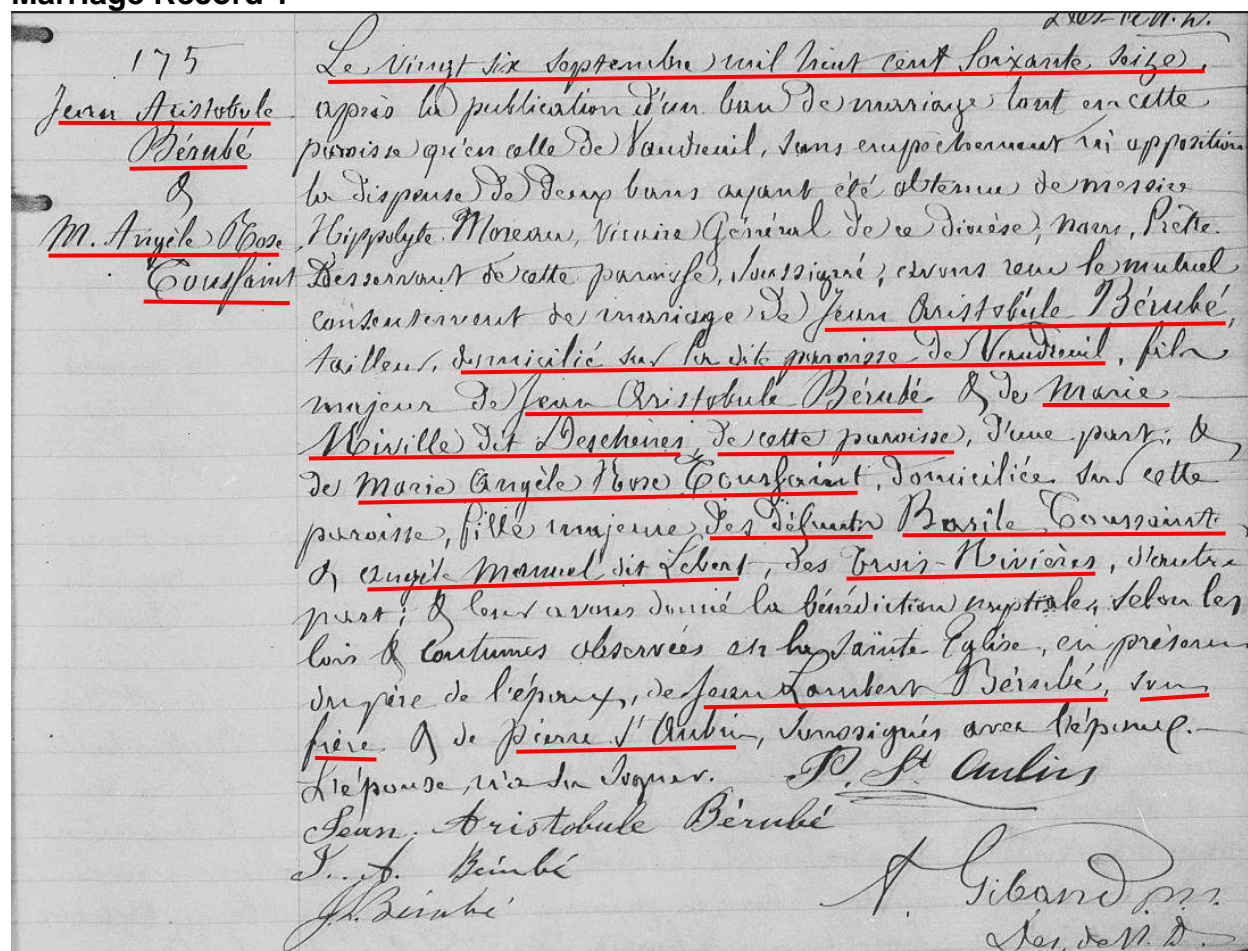 Marriage Record 1
175
Jean Aristobule
Bérubé
&
M. Angèle Rose
Toussaint
Le vingt six septembre mil huit cent soixante seize,
après la publication d'un ban de mariage tant en cette
paroisse qu'en celle de Vaudreuil, sans empêchement ni opposition
la dispense de deux bans ayant été obtenue de messire
Hippolyte Moreau, Vicaire Général de ce diocèse, nous, Prêtre
Desservant de cette paroisse, soussigné, avons reçu le mutuel
consentement de mariage de Jean Aristobule Bérubé,
tailleur, domicilié sur la dite paroisse de Vaudreuil, fils
majeur de Jean Aristobule Bérubé & de Marie
Miville dit Deschènes, de cette paroisse, d'une part; &
de Marie Angèle Rose Toussaint, domiciliée sur cette
paroisse, fille majeure des défunts Basile Toussaint
& Angèle Manuel dit Lebert, des Trois-Rivières, d'autre
part; & leur avons donné la bénédiction nuptiale, selon les
lois & coutumes observées en la Sainte Eglise, en présence
du père de l'époux, de Jean Lambert Bérubé, son
frère & de Pierre St Aubin, soussignés avec l'époux.
L'épouse n'a su signer. P. St Aubin
Jean. Aristobule Bérubé
J. A. Bérubé
J.L. Bérubé
Des. de N. D.